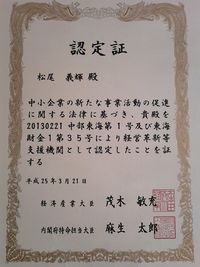 認定証
松尾 義輝 殿
中小企業の新たな事業活動の促進
に関する法律に基づき、貴殿を
20130221中部東海第1号及び東海
財金1第35号により経営革新等
支援機関として認定したことを証
する
平成25年3月21日
経済産業大臣 茂木 敏充
内閣府特命担当大臣 麻生 太郎